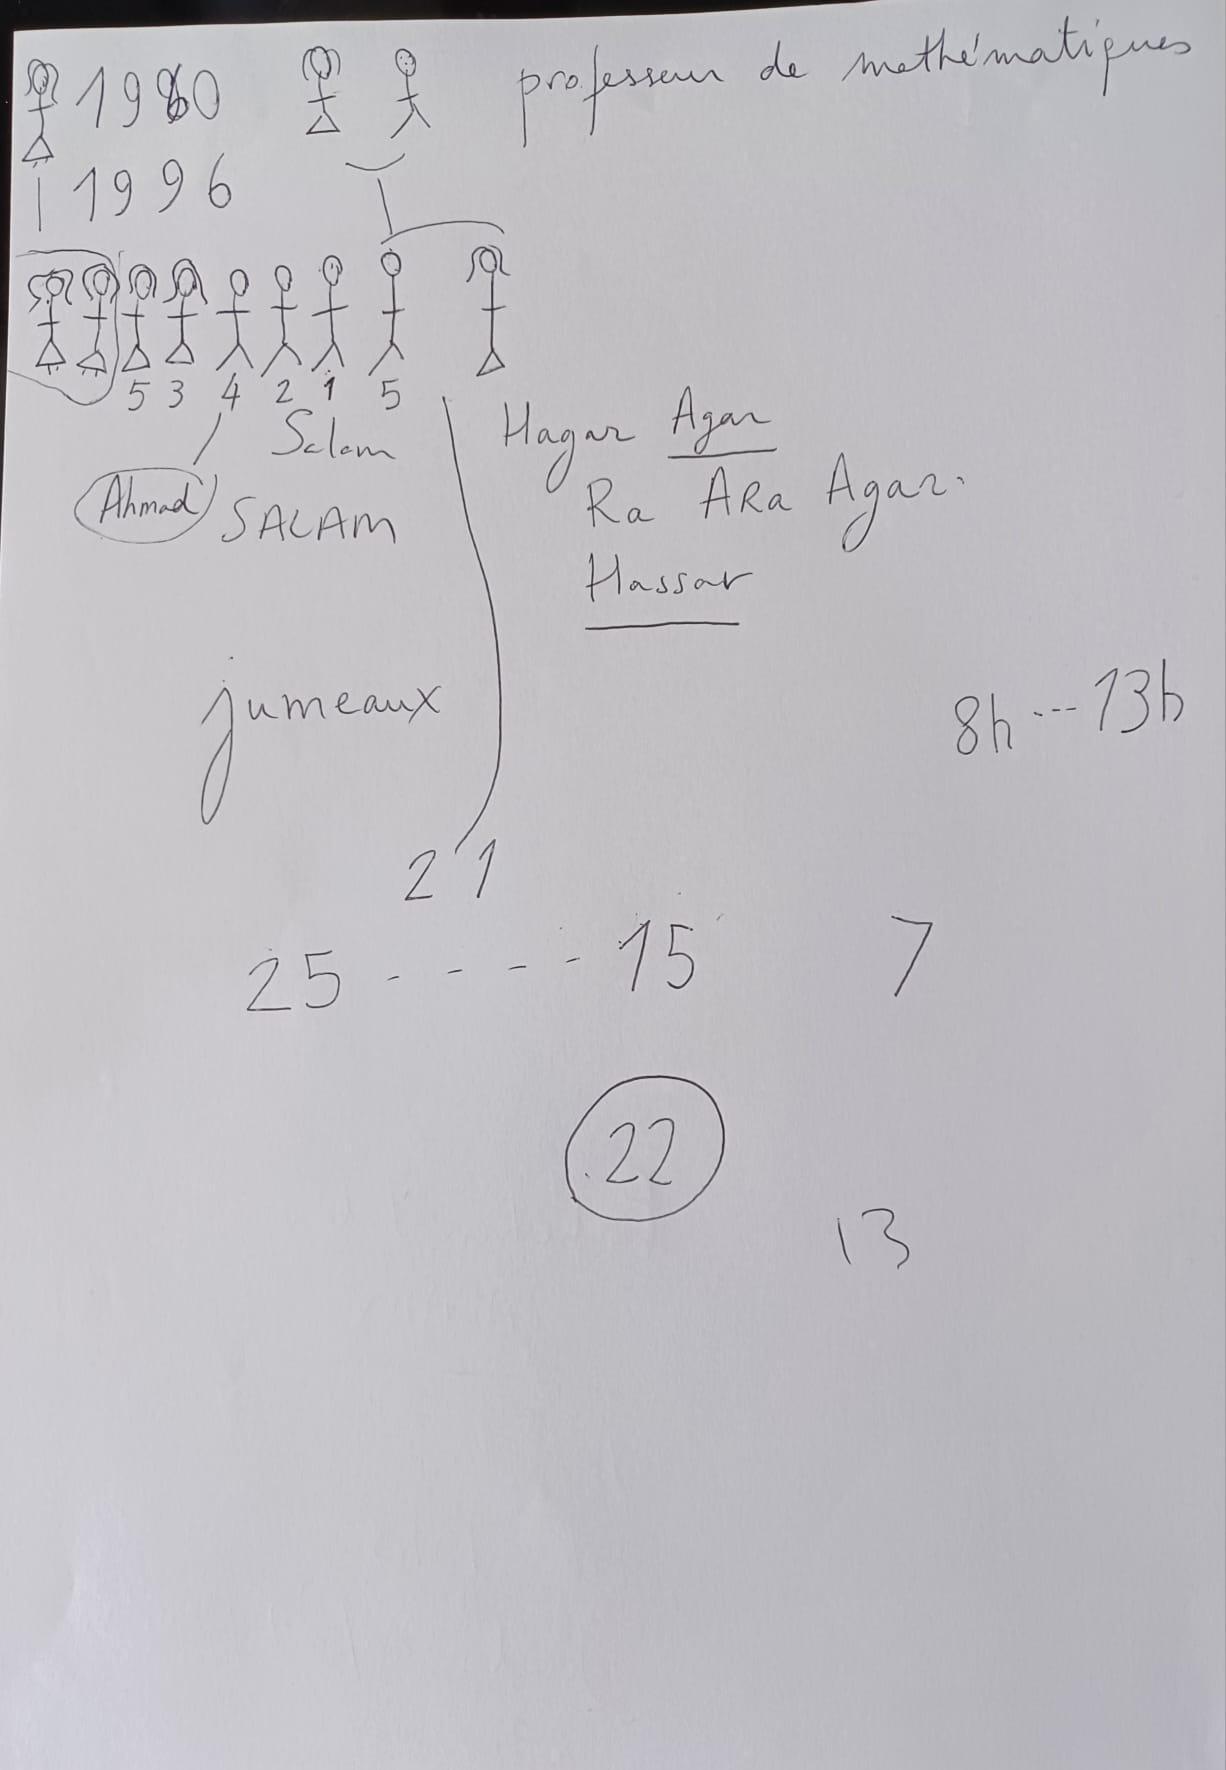 1980 professeur de mathématiques
1996
5 3 4 2 1 5
Salam Hagar Agar
Ahmad SALAM Ra ARa Agar.
Hassar
jumeaux
8h --- 13h
21
25 - - - - 15 7
22
13